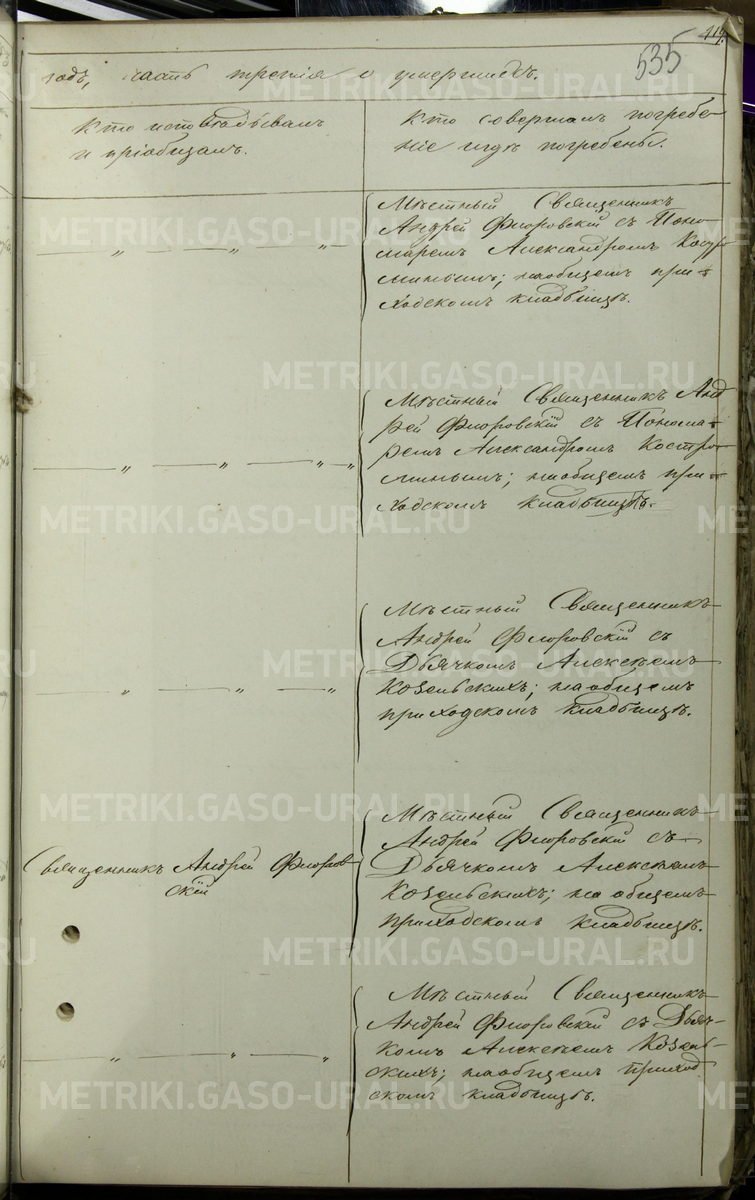 535
годъ, часть третія о умершихъ.
Кто исповѣдывалъ
и пріобщалъ.
Кто совершалъ погребе-
ніе и гдѣ погребены.
Мѣстный Священникъ
Андрей Флоровскій съ Поно-
маремъ Александромъ
наобщемъ при-
ходскомъ кладбищѣ.
Мѣстный Священникъ Анд
рей Флоровскій съ Понома-
ремъ Александромъ Костро-
миньмъ; наобщемъ при-
ходскомъ кладбищѣ.
Мѣстный Священникъ
Андрей Флоровскій съ
Дьячкомъ Алексѣемъ
Козельскихъ; на общемъ
приходскомъ кладбищѣ.
Священникъ Андрей Флоров
скій
Мѣстный Священникъ
Андрей Флоровскій съ
Дьячкомъ Алексѣемъ
Козельскихъ; на общемъ
приходскомъ кладбищѣ.
Мѣстный Священникъ
Андрей Флоровскій съ Дьяч-
комъ Алексѣемъ Козель-
скихъ; наобщемъ приход
скомъ кладбищѣ.
METRIKI.GASO-URAL.RU